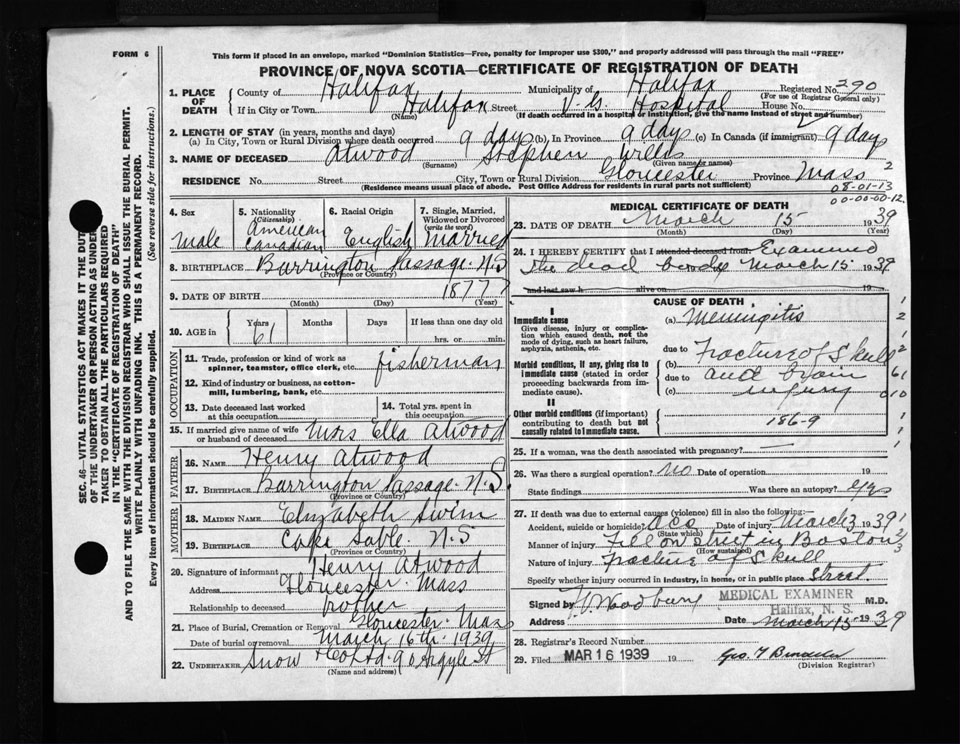 FORM 6
This form if placed in an envelope, marked "Dominion Statistics—Free, penalty for improper use $300," and properly addressed will pass through the mail "FREE"
PROVINCE OF NOVA SCOTIA—CERTIFICATE OF REGISTRATION OF DEATH
1. PLACE OF DEATH
County of Halifax Municipality of Halifax Registered No. 290
(For use of Registrar General only)
If in City or Town Halifax Street V.G. Hospital House No.
(Name) (If death occurred in a hospital or institution, give the name instead of street and number)
2. LENGTH OF STAY (in years, months and days)
(a) In City, Town or Rural Division where death occurred 9 days (b) In Province 9 days (c) In Canada (if immigrant) 9 days
3. NAME OF DECEASED Atwood Stephen Willis
(Surname) (Given name or names)
RESIDENCE No. Street City, Town or Rural Division Gloucester Province Mass 2
(Residence means usual place of abode. Post Office Address for residents in rural parts not sufficient)
08-01-13
00-00-00-12
SEC. 46—VITAL STATISTICS ACT MAKES IT THE DUTY
OF THE UNDERTAKER OR PERSON ACTING AS UNDER
TAKER TO OBTAIN ALL THE PARTICULARS REQUIRED
IN THE "CERTIFICATE OF REGISTRATION OF DEATH"
AND TO FILE THE SAME WITH THE DIVISION REGISTRAR WHO SHALL ISSUE THE BURIAL PERMIT.
WRITE PLAINLY WITH UNFADING INK. THIS IS A PERMANENT RECORD.
Every item of information should be carefully supplied. (See reverse side for instructions.)
4. Sex
Male
5. Nationality
(Citizenship)
American
Canadian
6. Racial Origin
English
7. Single, Married, Widowed or Divorced
(write the word)
Married
8. BIRTHPLACE Barrington Passage. N.S
(Province or Country)
9. DATE OF BIRTH 1877
(Month) (Day) (Year)
10. AGE in
Years Months Days If less than one day old
61 hrs. or min.
OCCUPATION
11. Trade, profession or kind of work as
spinner, teamster, office clerk, etc. fisherman
12. Kind of industry or business, as cotton-
mill, lumbering, bank, etc.
13. Date deceased last worked
at this occupation
14. Total yrs. spent in
this occupation
15. If married give name of wife
or husband of deceased Mrs Ella Atwood
FATHER
16. NAME Henry Atwood
17. BIRTHPLACE Barrington Passage. N.S.
(Province or Country)
MOTHER
18. MAIDEN NAME Elizabeth Swim
19. BIRTHPLACE Cape Sable. N.S
(Province or Country)
20. Signature of informant Henry Atwood
Address Gloucester. Mass
Relationship to deceased brother
21. Place of Burial, Cremation or Removal Gloucester. Mass
Date of burial or removal March 16th. 1939
22. UNDERTAKER Snow & Co Ltd. 90 Argyle St
(Name and address)
MEDICAL CERTIFICATE OF DEATH
23. DATE OF DEATH March 15 1939
(Month) (Day) (Year)
24. I HEREBY CERTIFY that I attended deceased from Examined
the dead body March 15 1939
and last saw h alive on 19
CAUSE OF DEATH
I
Immediate cause
Give disease, injury or complica-
tion which caused death, not the
mode of dying, such as heart failure,
asphyxia, asthenia, etc.
(a) Meningitis
due to
Morbid conditions, if any, giving rise to
immediate cause (stated in order
proceeding backwards from im-
mediate cause).
(b) Fracture of Skull
due to and brain
(c) injury
II
Other morbid conditions (if important)
contributing to death but not
causally related to immediate cause.
186-9
1
2
2
61
010
25. If a woman, was the death associated with pregnancy? —
26. Was there a surgical operation? No Date of operation 19
State findings Was there an autopsy? Yes
27. If death was due to external causes (violence) fill in also the following:—
Accident, suicide or homicide? acc Date of injury March 3 1939
(State which)
Manner of injury Fell on street in Boston
(How sustained)
Nature of injury Fracture of Skull
Specify whether injury occurred in industry, in home, or in public place Street.
Signed by Woodbury MEDICAL EXAMINER M.D.
Halifax, N. S.
Address Date March 15 1939
28. Registrar's Record Number
29. Filed MAR 16 1939 19 Geo. T
(Division Registrar)